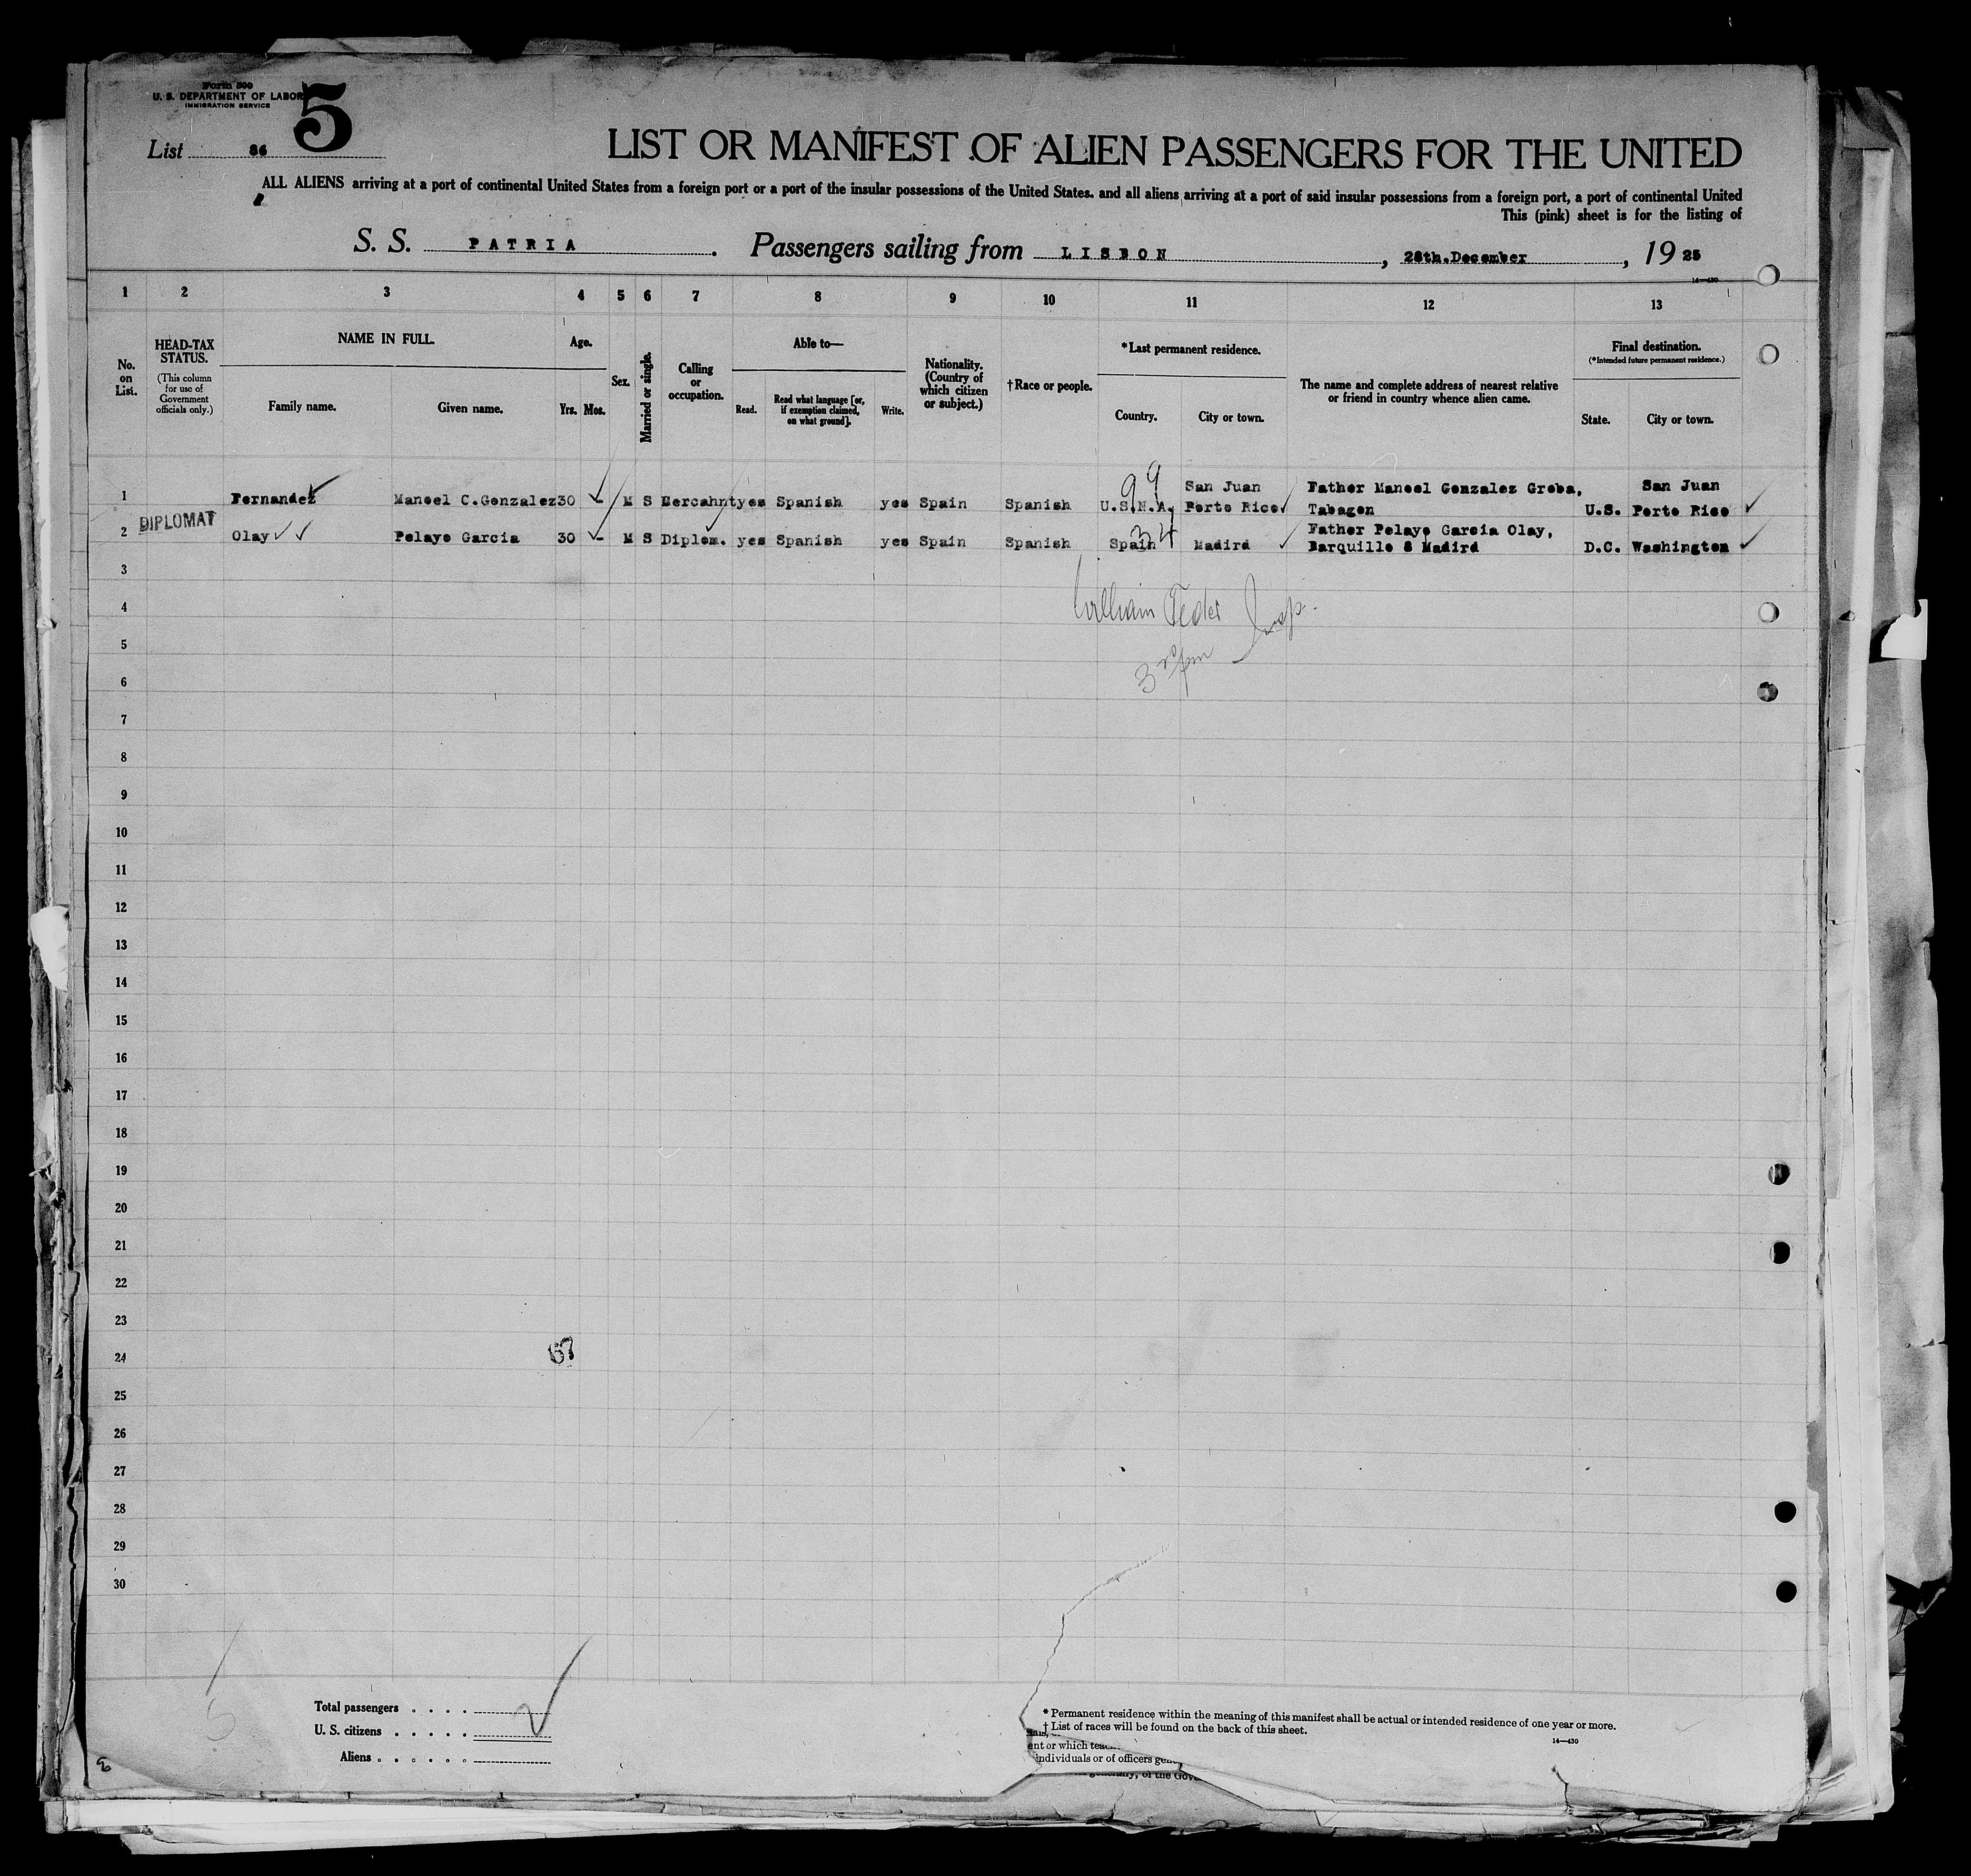 Form 500
U. S. DEPARTMENT OF LABOR
IMMIGRATION SERVICE
5
List 86
LIST OR MANIFEST OF ALIEN PASSENGERS FOR THE UNITED
ALL ALIENS arriving at a port of continental United States from a foreign port or a port of the insular possessions of the United States, and all aliens arriving at a port of said insular possessions from a foreign port, a port of continental United
This (pink) sheet is for the listing of
S. S. PATRIA. Passengers sailing from LISBON, 28th.December, 19 25
14—430
1 2 3 4 5 6 7 8 9 10 11 12 13
No. on List.
HEAD-TAX STATUS.
(This column for use of Government officials only.)
NAME IN FULL.
Family name. Given name.
Age.
Yrs. Mos.
Sex.
Married or single.
Calling or occupation.
Able to—
Read. Read what language [or, if exemption claimed, on what ground]. Write.
Nationality. (Country of which citizen or subject.)
†Race or people.
*Last permanent residence.
Country. City or town.
The name and complete address of nearest relative or friend in country whence alien came.
Final destination.
(*Intended future permanent residence.)
State. City or town.
99
1 Fernandez Manoel C.Gonzalez 30 - M S Mercahnt yes Spanish yes Spain Spanish U.S.N.A. San Juan Porto Rico Father Manoel Gonzalez Groba, Tabagon U.S. San Juan Porto Rico
DIPLOMAT
34
2 Olay Pelayo Garcia 30 - M S Diplom. yes Spanish yes Spain Spanish Spain Madird Father Pelayo Garcia Olay, Barquillo 8 Madird D.C. Washington
3
4
William Feder Insp.
5
3 pm
6
7
8
9
10
11
12
13
14
15
16
17
18
19
20
21
22
23
24
67
25
26
27
28
29
30
5
Total passengers . . . .
U. S. citizens . . . . .
Aliens . . . . . .
* Permanent residence within the meaning of this manifest shall be actual or intended residence of one year or more.
† List of races will be found on the back of this sheet.
14—430
ent or which
individuals or of officers
generally, of the